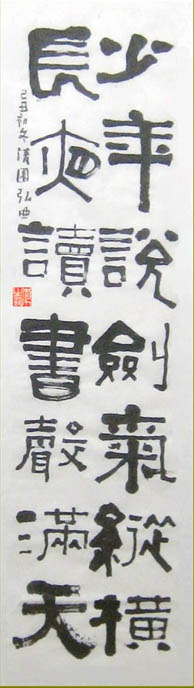 少年說劍氣縱橫
長夜讀書聲滿天
己丑初冬清園弘曲